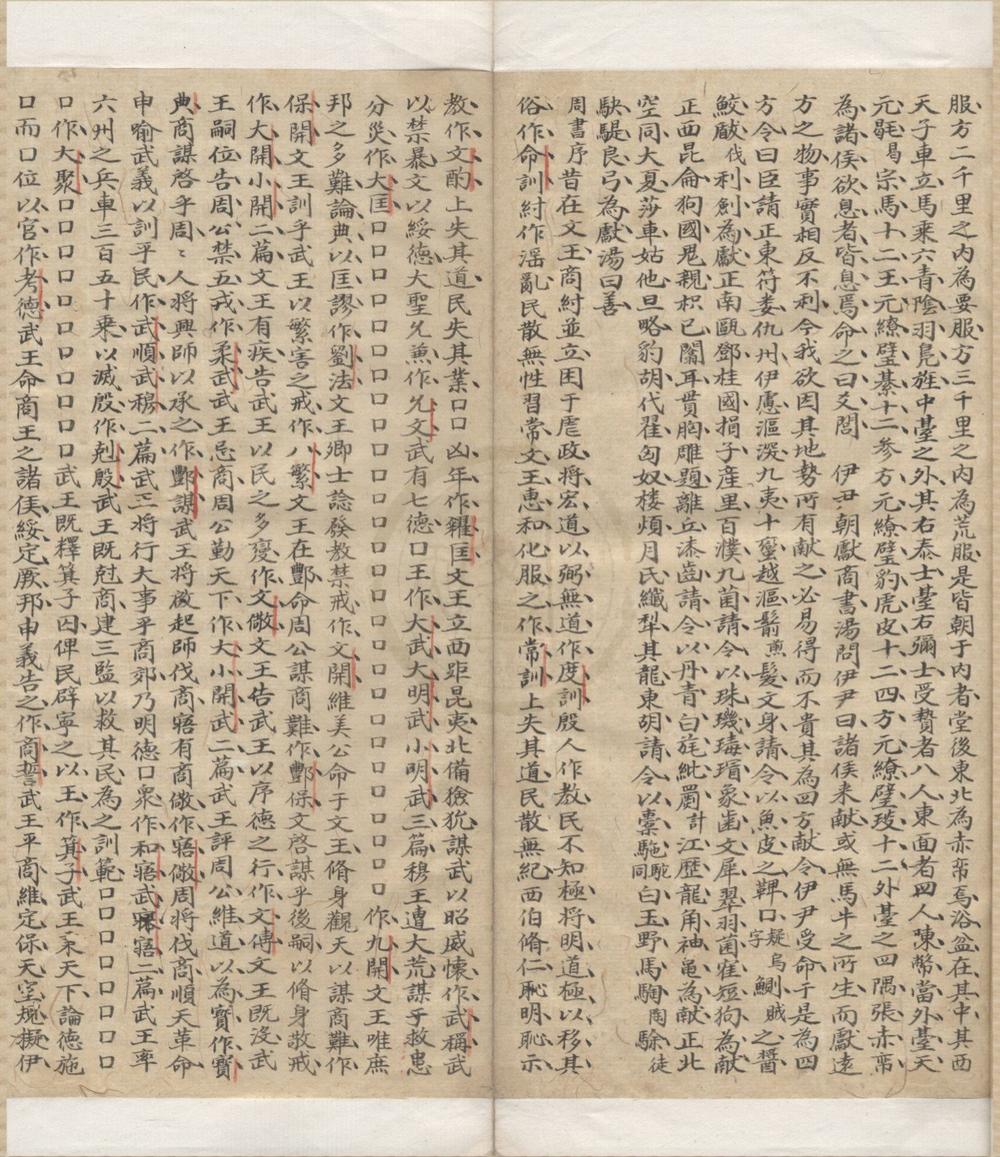 服方二千里之內為要服方三千里之內為荒服是皆朝于內者堂後東北為赤帟焉浴盆在其中其西
天子車立馬乘六青陰羽鳧旌中臺之外其右泰士臺右彌士受贄者八人東面者四人陳幣當外臺天
元毼曷宗馬十二王元繚璧綦十二参方元繚璧豹虎皮十二四方元繚璧琰十二外臺之四隅張赤帟
為諸侯欲息者皆息焉命之曰爻閭　伊尹朝獻商書湯問伊尹曰諸侯来献或無馬牛之所生而獻遠
方之物事實相反不利今我欲因其地勢所有献之必易得而不貴其為四方献令伊尹受命于是為四
方令曰臣請正東符娄仇州伊慮漚深九夷十蠻越漚鬋煎髮文身請令以魚皮之鞞口疑烏鰂賊之醬
字
鮫瞂伐利劍為獻正南甌鄧桂國損子產里百濮九菌請令以珠璣瑇瑁象齒文犀翠羽菌寉短狗為献
正西昆侖狗國鬼親枳已闟耳貫胸雕題離丘漆齒請令以丹青白旄紕罽計江歷龍角袖龜為献正北
空同大夏莎車姑他旦略豹胡代翟匈奴楼煩月氏纖犁其龍東胡請令以橐駞駝白玉野馬騊陶駼徒
同
駃騠良弓為獻湯曰善
周書序昔在文王商紂並立困于虐政将宏道以弼無道作度訓殷人作教民不知極将明道極以移其
俗作命訓紂作淫亂民散無性習常文王惠和化服之作常訓上失其道民散無紀西伯脩仁恥明恥示
教作文酌上失其道民失其業口口凶年作糴匡文王立西距昆夷北備獫狁謀武以昭威懷作武稱武
以禁暴文以綏德大聖允兼作允文武有七德口王作大武大明武小明武三篇穆王遭大荒謀乎救患
分災作大匡口口口口口口口口口口口口口口口口口作九開文王唯庶
邦之多難論典以匡謬作劉法文王卿士諗發教禁戒作文開維美公命于文王脩身觀天以謀商難作
保開文王訓乎武王以繁害之戒作八繁文王在酆命周公謀商難作酆保文啓謀乎後嗣以脩身敬戒
作大開小開二篇文王有疾告武王以民之多變作文儆文王告武王以序德之行作文傳文王既沒武
王嗣位告周公禁五戎作柔武武王忌商周公勤天下作大小開武二篇武王評周公維道以為寶作寶
典商謀啓乎周ミ人将興師以承之作酆謀武王将啟起師伐商寤有商儆作寤儆周将伐商順天革命
申喻武義以訓乎民作武順武穆二篇武王将行大事乎商郊乃明德口衆作和寤武寤二篇武王率
六州之兵車三百五十乘以滅殷作剋殷武王既尅商建三監以救其民為之訓範口口口口口口
口作大聚口口口口口口口口口口口武王既釋箕子囚俾民辟寧之以王作箕子武王秉天下論德施
口而口位以官作考德武王命商王之諸侯綏定厥邦申義告之作商誓武王平商維定保天室規擬伊